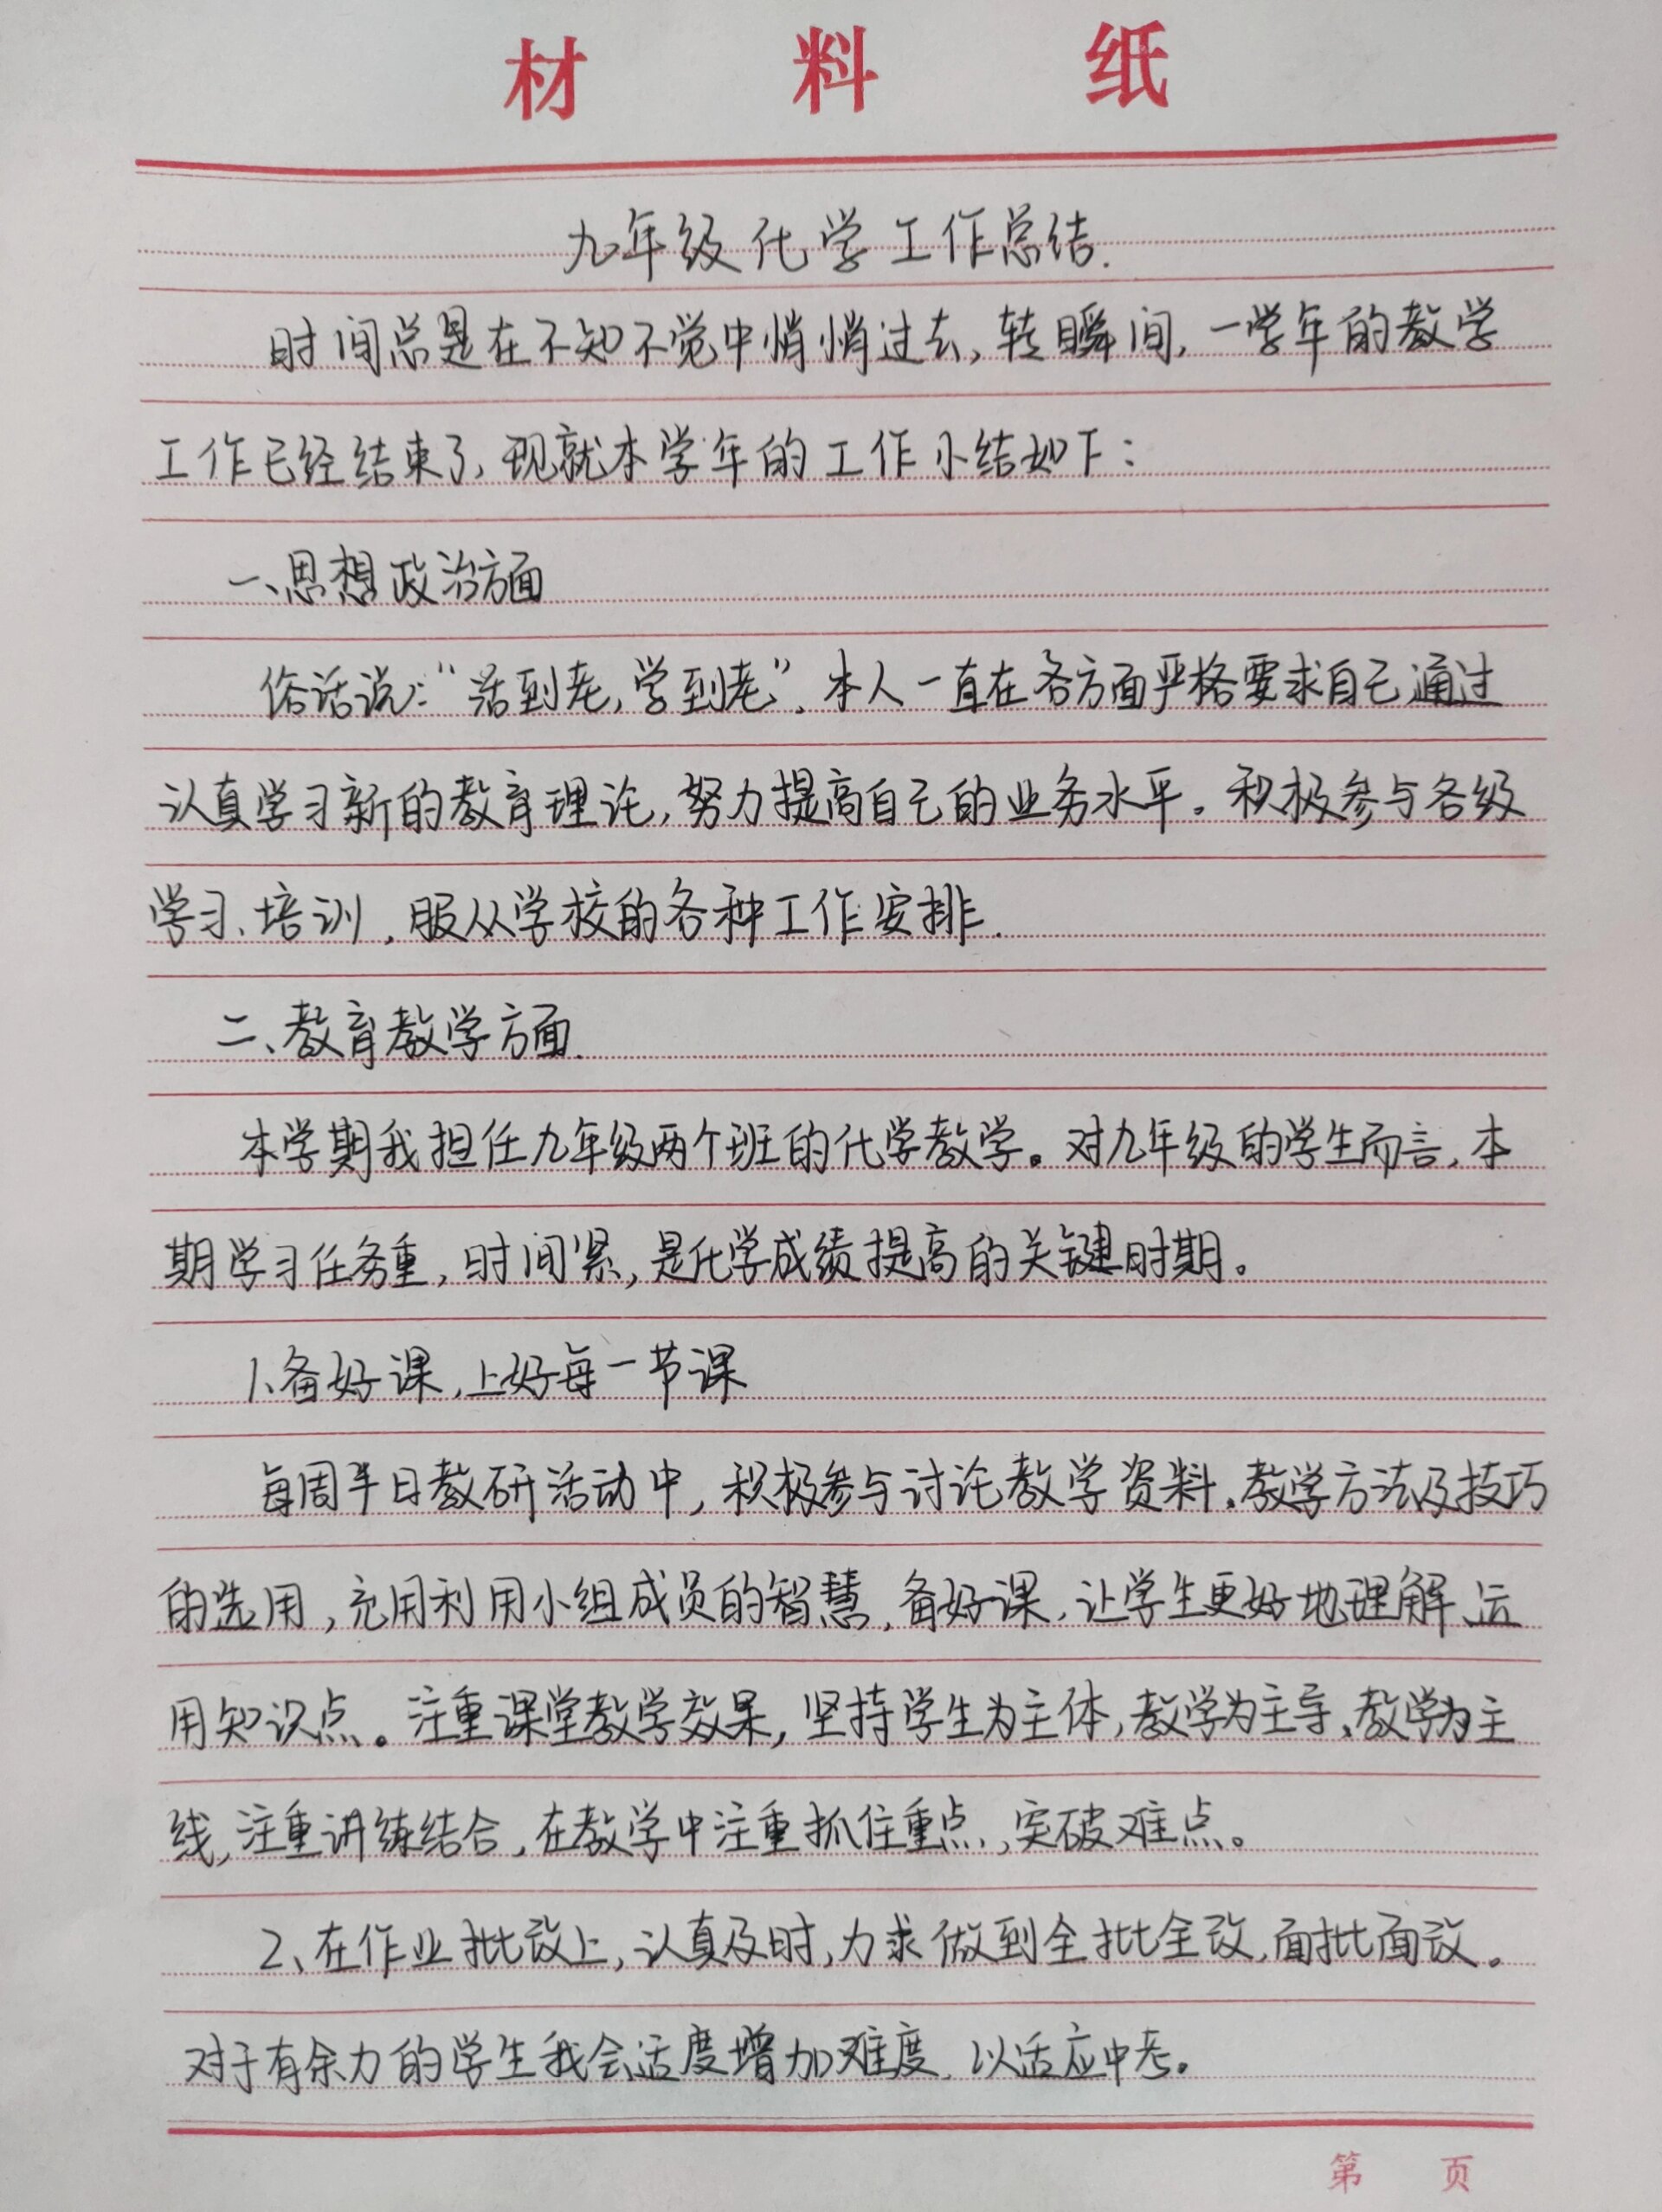 材料纸
九年级化学工作总结.
时间总是在不知不觉中悄悄过去,转瞬间,一学年的教学
工作已经结束了,现就本学年的工作小结如下:
一、思想政治方面
俗话说:“活到老,学到老”,本人一直在各方面严格要求自己通过
认真学习新的教育理论,努力提高自己的业务水平。积极参与各级
学习、培训,服从学校的各种工作安排.
二、教育教学方面.
本学期我担任九年级两个班的化学教学。对九年级的学生而言,本
期学习任务重,时间紧,是化学成绩提高的关键时期。
1、备好课,上好每一节课
每周半日教研活动中,积极参与讨论教学资料、教学方法及技巧
的选用,充用利用小组成员的智慧,备好课,让学生更好地理解、运
用知识点。注重课堂教学效果,坚持学生为主体,教学为主导、教学为主
线,注重讲练结合,在教学中注重抓住重点,突破难点。
2、在作业批改上,认真及时,力求做到全批全改,面批面改。
对于有余力的学生我会适度增加难度,以适应中考。
第 页